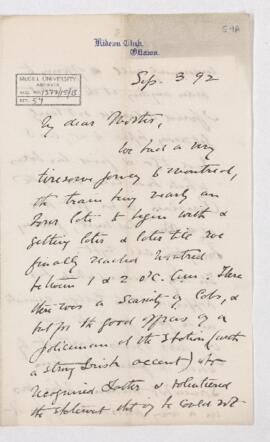 54A
Rideau Club,
Ottawa.
Sep. 3 92
McGILL UNIVERSITY
ARCHIVES
ACC. NO.
REF. 54
My dear
We had a very
tiresome journey to Montreal,
the train being nearly an
hour late to begin with &
getting later & later till we
finally reached Montreal
between 1 & 2 o'C. a.m. There
there was a scarcity of Cabs, &
but for the good offices of a
policeman at the Station (with
a strong Irish accent) who
recognised & volunteered
the statement that if he could not